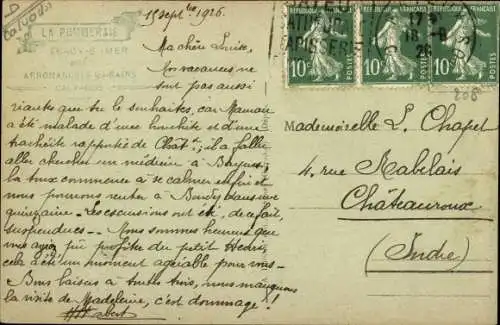 15 septbre 1926.
LA POMMERAIE
TRACY-S-MER
PAR
ARROMANCHES-LES-BAINS
CALVADOS
Ma chère Louise,
Nos vacances ne
sont pas aussi
riantes que tu le souhaites, car Maman
a été malade d'une bronchite et d'une
trachéite rapportée de Chat^x; il a fallu
aller chercher un médecin à Bayeux;
la toux commence à se calmer enfin et
nous pourrons rentrer à dans une
quinzaine. Les excursions ont été, de ce fait,
suspendues. Nous sommes heureux que
vous ayiez pu profiter du petit Henri,
cela a été un moment agréable pour vous.
Bons baisers à toutes trois, nous manquons
la visite de Madeleine, c'est dommage!
REPUBLIQUE FRANCAISE
REPUBLIQUE FRANCAISE
REPUBLIQUE FRANCAISE
10c POSTES
10c POSTES
10c POSTES
TAPISSERIE
17
18 -9
26
Mademoiselle L. Chapel
4, rue Rabelais
Châteauroux
(Indre)